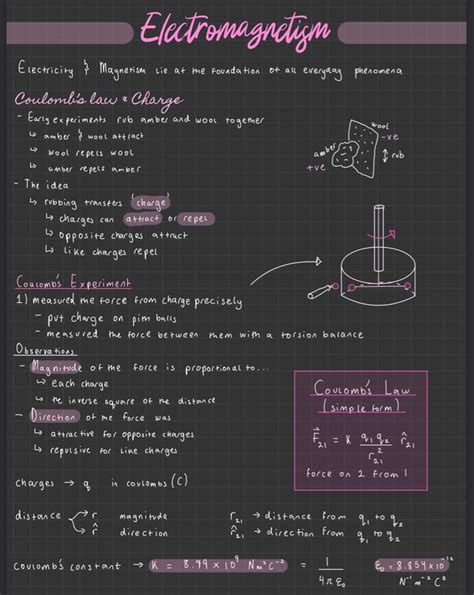 Electromagnetism
Electricity & Magnetism lie at the foundation of all everyday phenomena
Coulomb's law & Charge
- Early experiments rub amber and wool together
↳ amber & wool attract
↳ wool repels wool
↳ amber repels amber
wool
-ve
amber
+ve
↕ rub
- The idea
↳ rubbing transfers 'charge'
↳ charges can attract or repel
↳ opposite charges attract
↳ like charges repel
Coulomb's Experiment
1) measured the force from charge precisely
- put charge on pith balls
- measured the force between them with a torsion balance
Observations
- Magnitude of the force is proportional to...
↳ each charge
↳ the inverse square of the distance
- Direction of the force was
↳ attractive for opposite charges
↳ repulsive for like charges
Coulomb's Law
(simple form)
F⃗₂₁ = K q₁q₂/r²₂₁ r̂₂₁
force on 2 from 1
charges → q in coulombs (C)
distance → r magnitude r₂₁ → distance from q₁ to q₂
→ r̂ direction r̂₂₁ → direction from q₁ to q₂
Coulomb's constant → K = 8.99 × 10⁹ N m² C⁻² = 1/4πε₀ ε₀ = 8.854 × 10⁻¹² N⁻¹ m⁻² C²